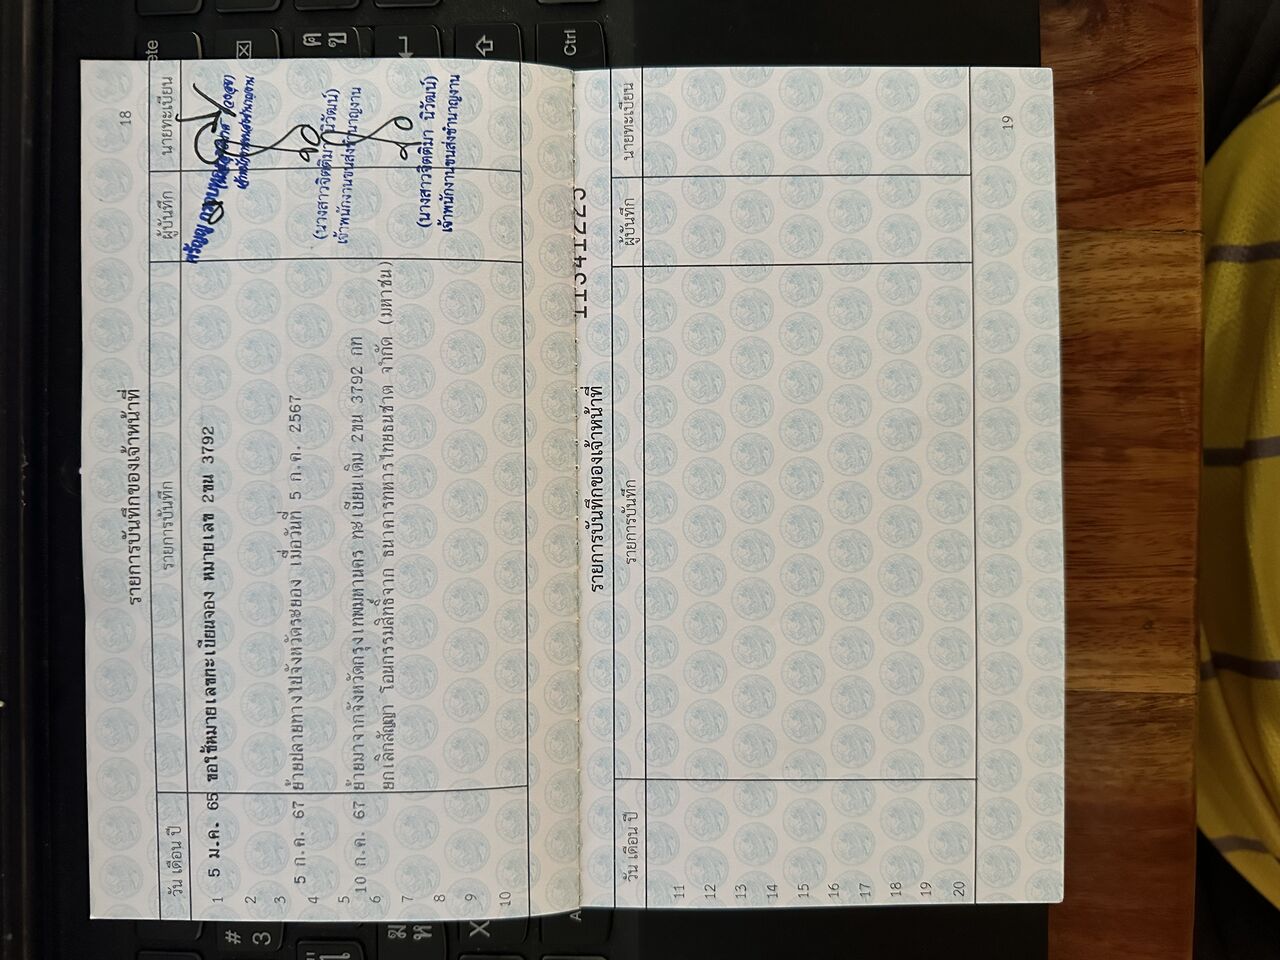 18
รายการบันทึกของเจ้าหน้าที่
วัน เดือน ปี รายการบันทึก ผู้บันทึก นายทะเบียน
1 5 ม.ค. 65 ขอใช้หมายเลขทะเบียนจอง หมายเลข 2ขน 3792
2
3
4 5 ก.ค. 67 ย้ายปลายทางไปจังหวัดระยอง เมื่อวันที่ 5 ก.ค. 2567
(นางสาวจิตติมา นิวัฒน์)
เจ้าพนักงานขนส่งชำนาญงาน
5
6 10 ก.ค. 67 ย้ายมาจากจังหวัดกรุงเทพมหานคร ทะเบียนเดิม 2ขน 3792 กท
7 ยกเลิกสัญญา โอนกรรมสิทธิ์จาก ธนาคารทหารไทยธนชาต จำกัด (มหาชน)
(นางสาวจิตติมา นิวัฒน์)
เจ้าพนักงานขนส่งชำนาญงาน
8
9
10
11541225
รายการบันทึกของเจ้าหน้าที่
วัน เดือน ปี รายการบันทึก ผู้บันทึก นายทะเบียน
11
12
13
14
15
16
17
18
19
20
19
ete
ฅ
ข
Ctrl
#
3
ฒ
ห
X
A